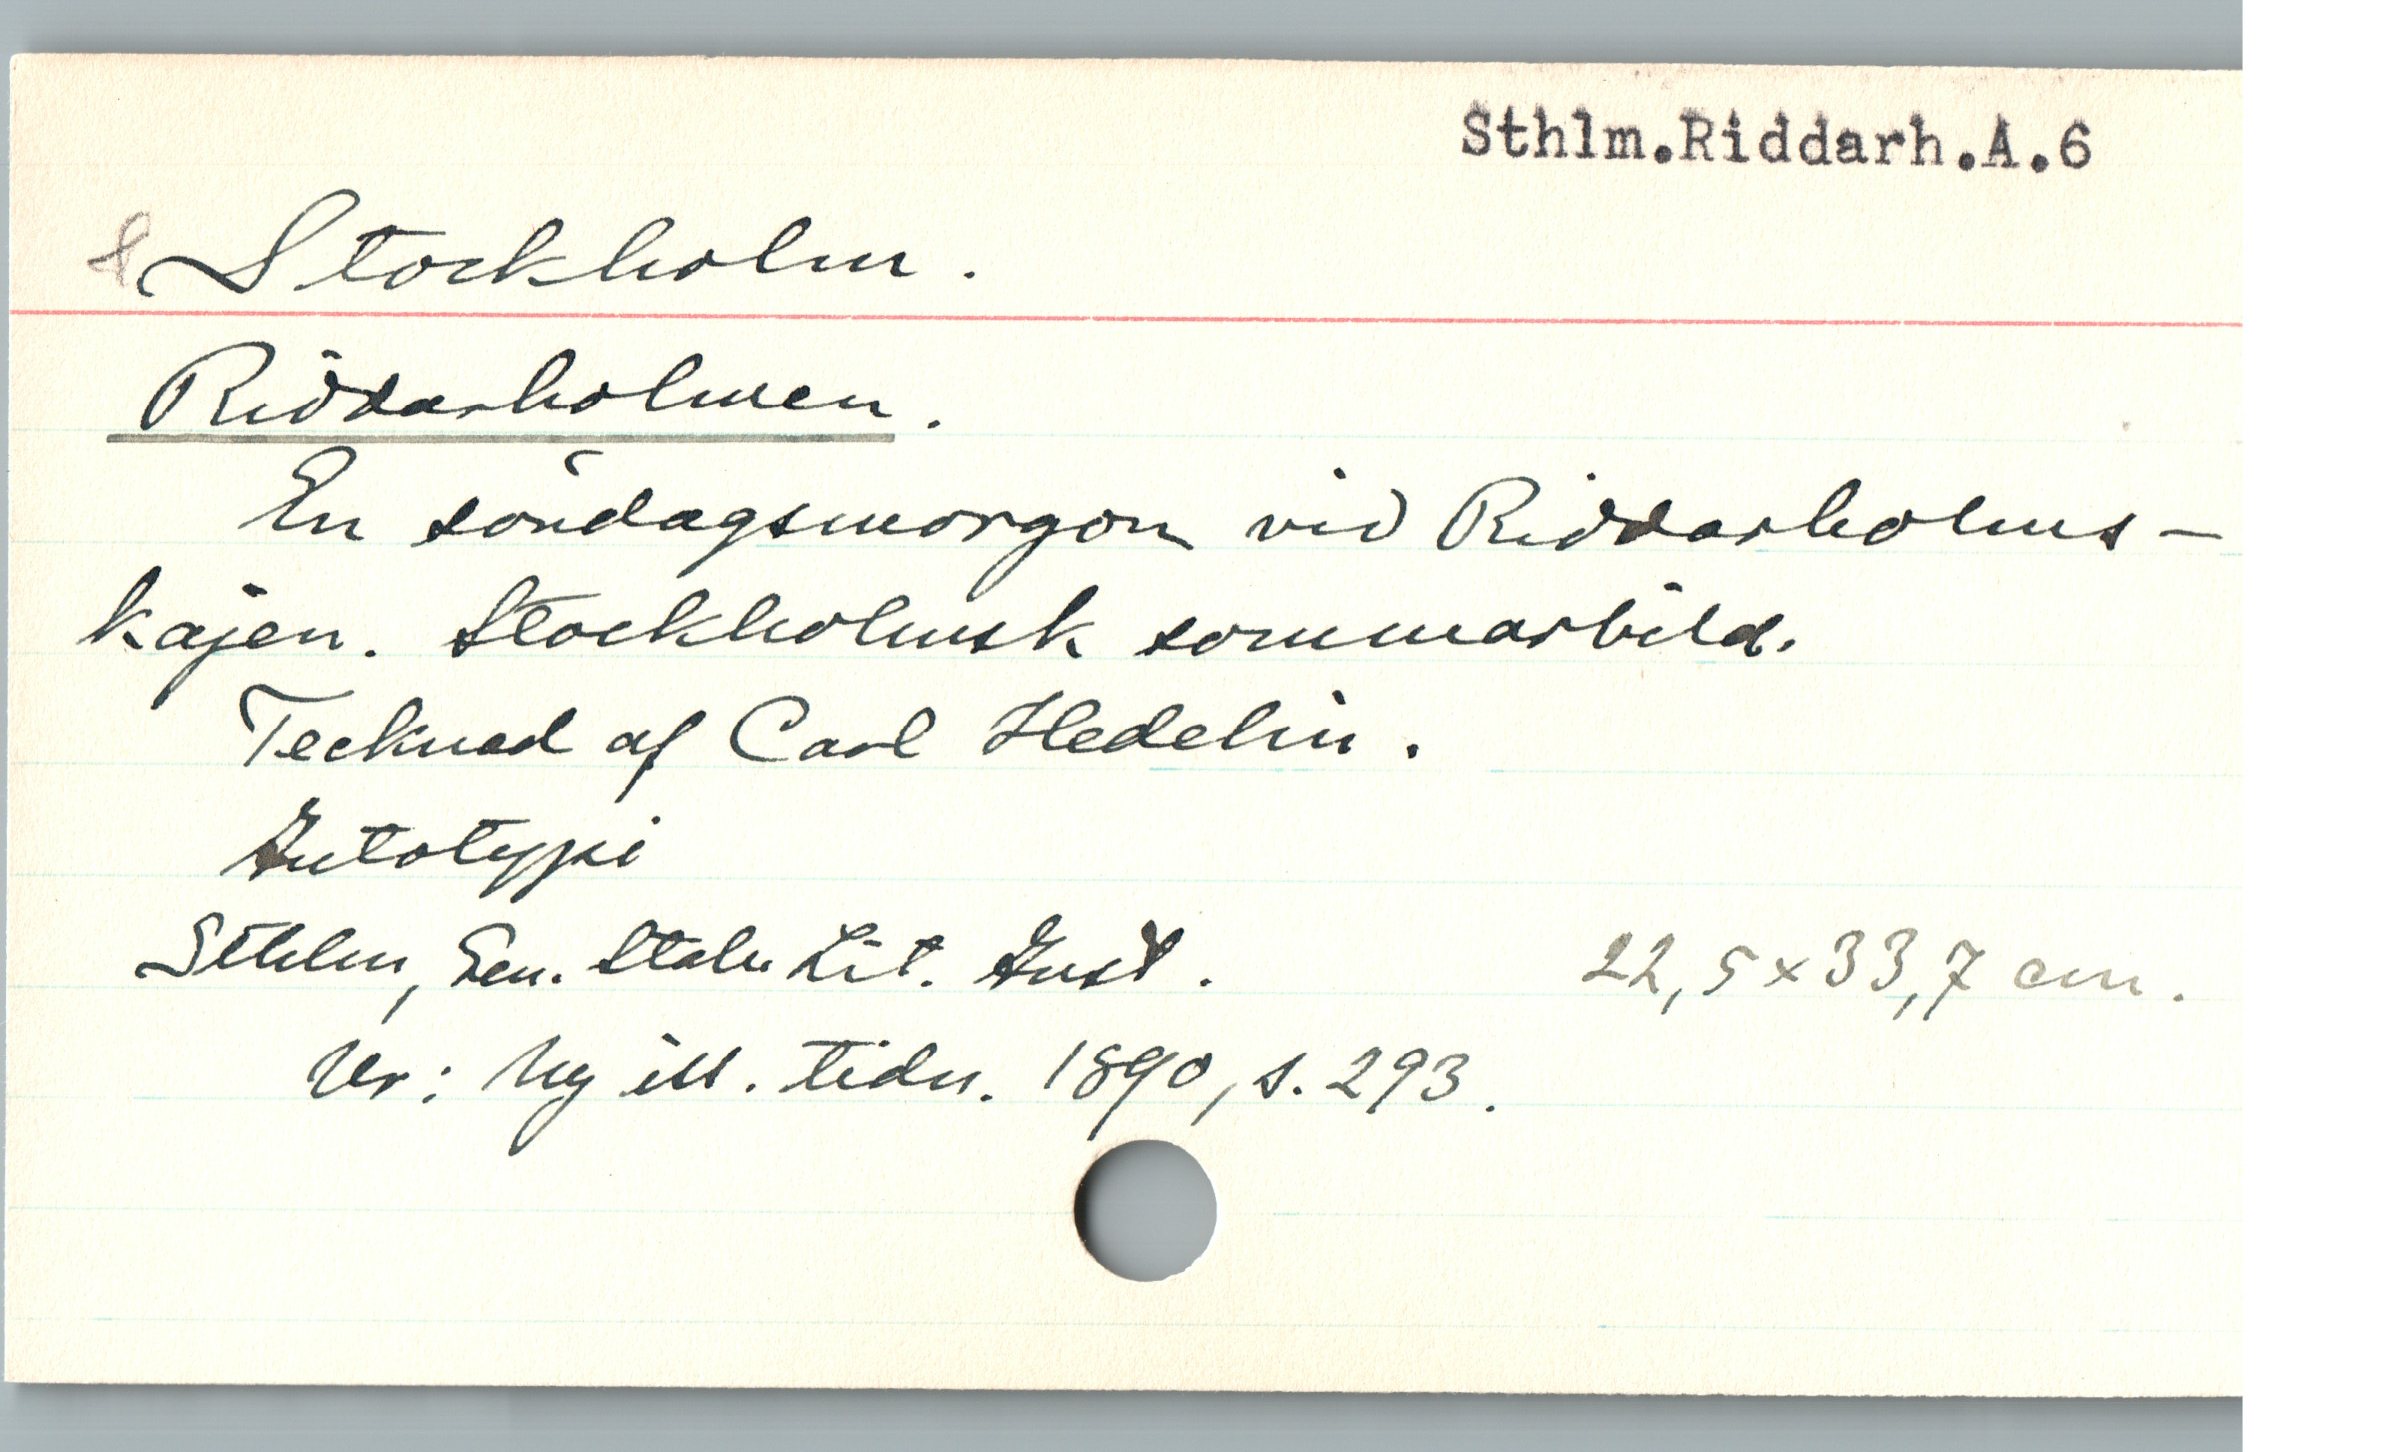 Sthlm.Riddarh.A.6
Stockholm.
Riddarholmen.
En söndagsmorgon vid Riddarholms-
kajen. Stockholmsk sommarbild.
Tecknad af Carl Hedelin.
Autotypi
Sthlm, Gen. Stab. Lit. Anst. 22,5 x 33,7 cm.
Ur: Ny ill. tidn. 1890, s. 293.